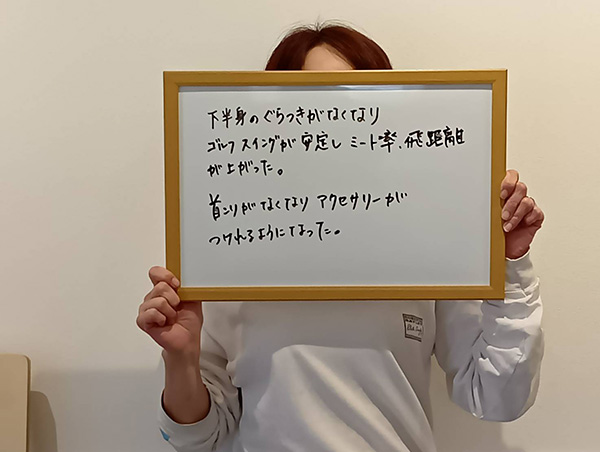 下半身のぐらつきがなくなり
ゴルフスイングが安定し ミート率、飛距離
が上がった。
首コリがなくなり アクセサリーが
つけれるようになった。